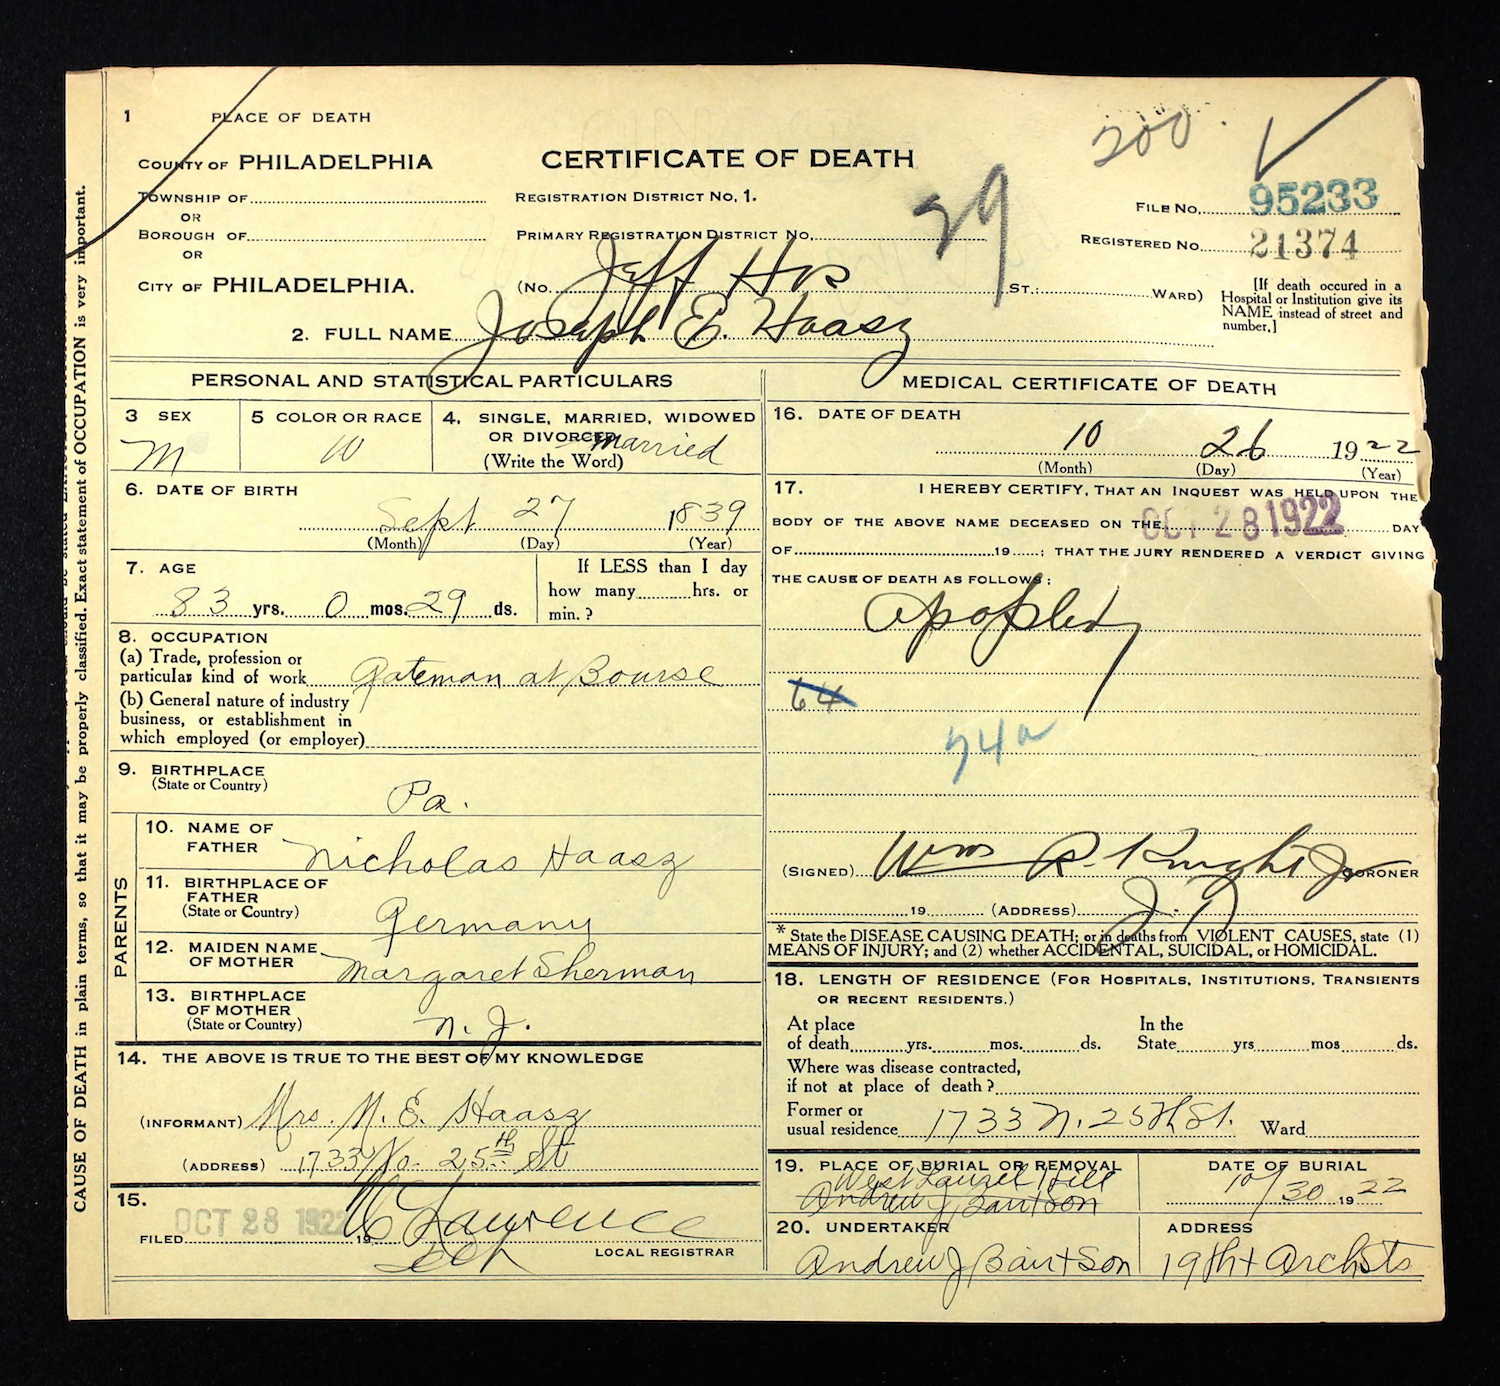 1 PLACE OF DEATH
COUNTY OF PHILADELPHIA
TOWNSHIP OF
OR
BOROUGH OF
OR
CITY OF PHILADELPHIA.
CERTIFICATE OF DEATH
REGISTRATION DISTRICT NO. 1.
PRIMARY REGISTRATION DISTRICT NO. 29
200.
FILE NO. 95233
REGISTERED NO. 21374
(No. Jeff Hos ST.; WARD)
[If death occured in a
Hospital or Institution give its
NAME instead of street and
number.]
2. FULL NAME Joseph E. Haasz
PERSONAL AND STATISTICAL PARTICULARS
3 SEX
M
5 COLOR OR RACE
W
4. SINGLE, MARRIED, WIDOWED
OR DIVORCED
(Write the Word)
Married
6. DATE OF BIRTH
Sept 27 1839
(Month) (Day) (Year)
7. AGE
83 yrs. 0 mos. 29 ds.
If LESS than 1 day
how many hrs. or
min.?
8. OCCUPATION
(a) Trade, profession or
particular kind of work Gateman at Bourse
(b) General nature of industry
business, or establishment in
which employed (or employer)
9. BIRTHPLACE
(State or Country)
Pa.
PARENTS
10. NAME OF
FATHER Nicholas Haasz
11. BIRTHPLACE OF
FATHER
(State or Country) Germany
12. MAIDEN NAME
OF MOTHER Margaret Sherman
13. BIRTHPLACE
OF MOTHER
(State or Country) N. J.
14. THE ABOVE IS TRUE TO THE BEST OF MY KNOWLEDGE
(INFORMANT) Mrs. M. E. Haasz
(ADDRESS) 1733 No. 25th St
15.
FILED OCT 28 1922 19 Lawrence
LOCAL REGISTRAR
MEDICAL CERTIFICATE OF DEATH
16. DATE OF DEATH
10 26 1922
(Month) (Day) (Year)
17. I HEREBY CERTIFY, THAT AN INQUEST WAS HELD UPON THE
BODY OF THE ABOVE NAME DECEASED ON THE OCT 28 1922 DAY
OF 19 ; THAT THE JURY RENDERED A VERDICT GIVING
THE CAUSE OF DEATH AS FOLLOWS:
Apoplexy
64
74a
(SIGNED) Wm R. Knight Jr CORONER
19 (ADDRESS)
* State the DISEASE CAUSING DEATH; or in deaths from VIOLENT CAUSES, state (1)
MEANS OF INJURY; and (2) whether ACCIDENTAL, SUICIDAL, or HOMICIDAL.
18. LENGTH OF RESIDENCE (FOR HOSPITALS, INSTITUTIONS, TRANSIENTS
OR RECENT RESIDENTS.)
At place
of death yrs. mos. ds.
In the
State yrs mos ds.
Where was disease contracted,
if not at place of death?
Former or
usual residence 1733 N. 25th St. Ward
19. PLACE OF BURIAL OR REMOVAL
West Laurel Hill
Andrew J Bair + Son
DATE OF BURIAL
10/30 1922
20. UNDERTAKER
Andrew J Bair + Son
ADDRESS
19th + Arch Sts
CAUSE OF DEATH in plain terms, so that it may be properly classified. Exact statement of OCCUPATION is very important.